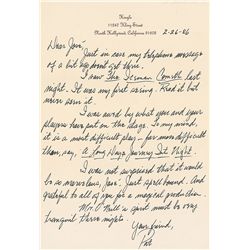 Hingle
11247 Kling Street
North Hollywood, California 91602
2-26-86
Dear Jose,
Just in case my telephone message
of a bit ago doesn't get there.
I saw The Iceman Cometh last
night. It was my first seeing. Read it but
never seen it.
I was awed by what you and your
players have put on the stage. In my mind
it is a most difficult play - far more difficult
than, say, A Long Day's Journey Into Night.
I was not surprised that it would
be so marvelous, Jose. Just spellbound. And
grateful to all of you for a magical production.
Mr. O'Neill's spirit must be very
tranquil these nights.
Your friend,
Pat